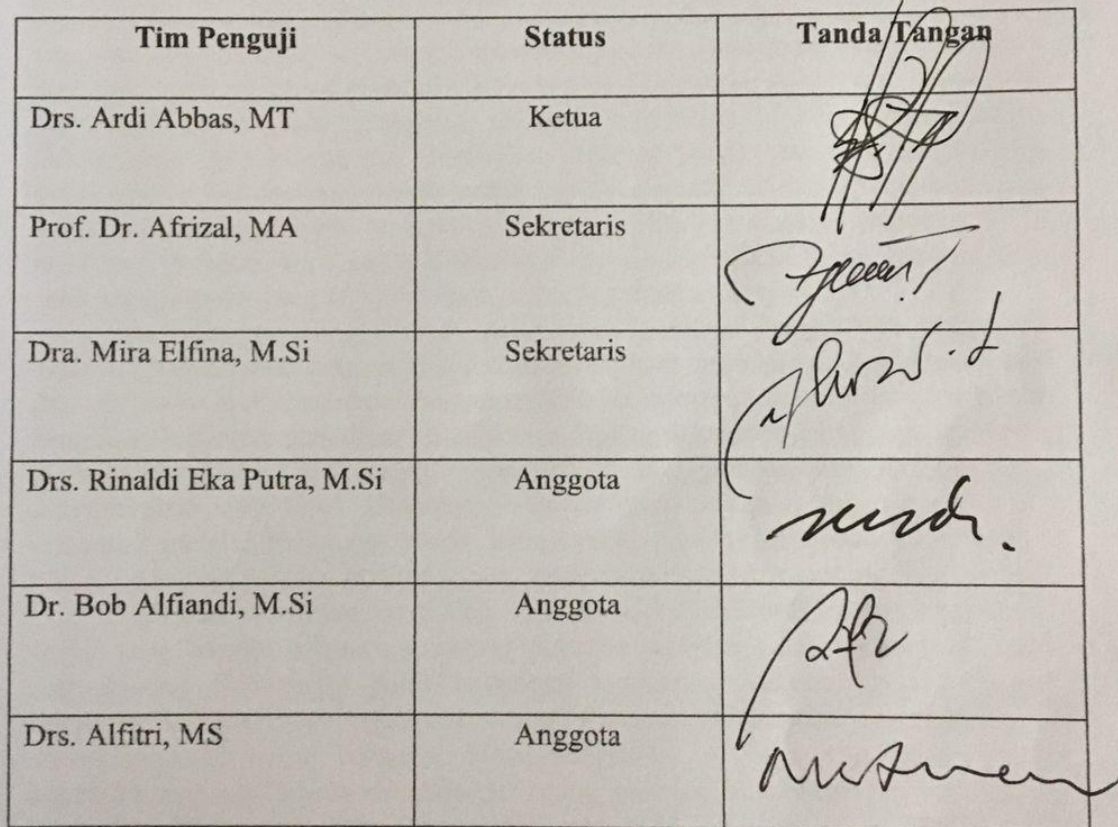 Tim Penguji Status Tanda Tangan
Drs. Ardi Abbas, MT Ketua
Prof. Dr. Afrizal, MA Sekretaris
Dra. Mira Elfina, M.Si Sekretaris
Drs. Rinaldi Eka Putra, M.Si Anggota
Dr. Bob Alfiandi, M.Si Anggota
Drs. Alfitri, MS Anggota